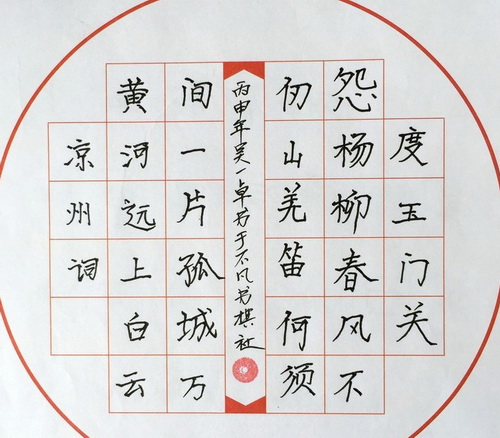 凉州词
黄河远上白云
间一片孤城万
丙申年吴一卓书于不凡书棋社
仞山羌笛何须
怨杨柳春风不
度玉门关